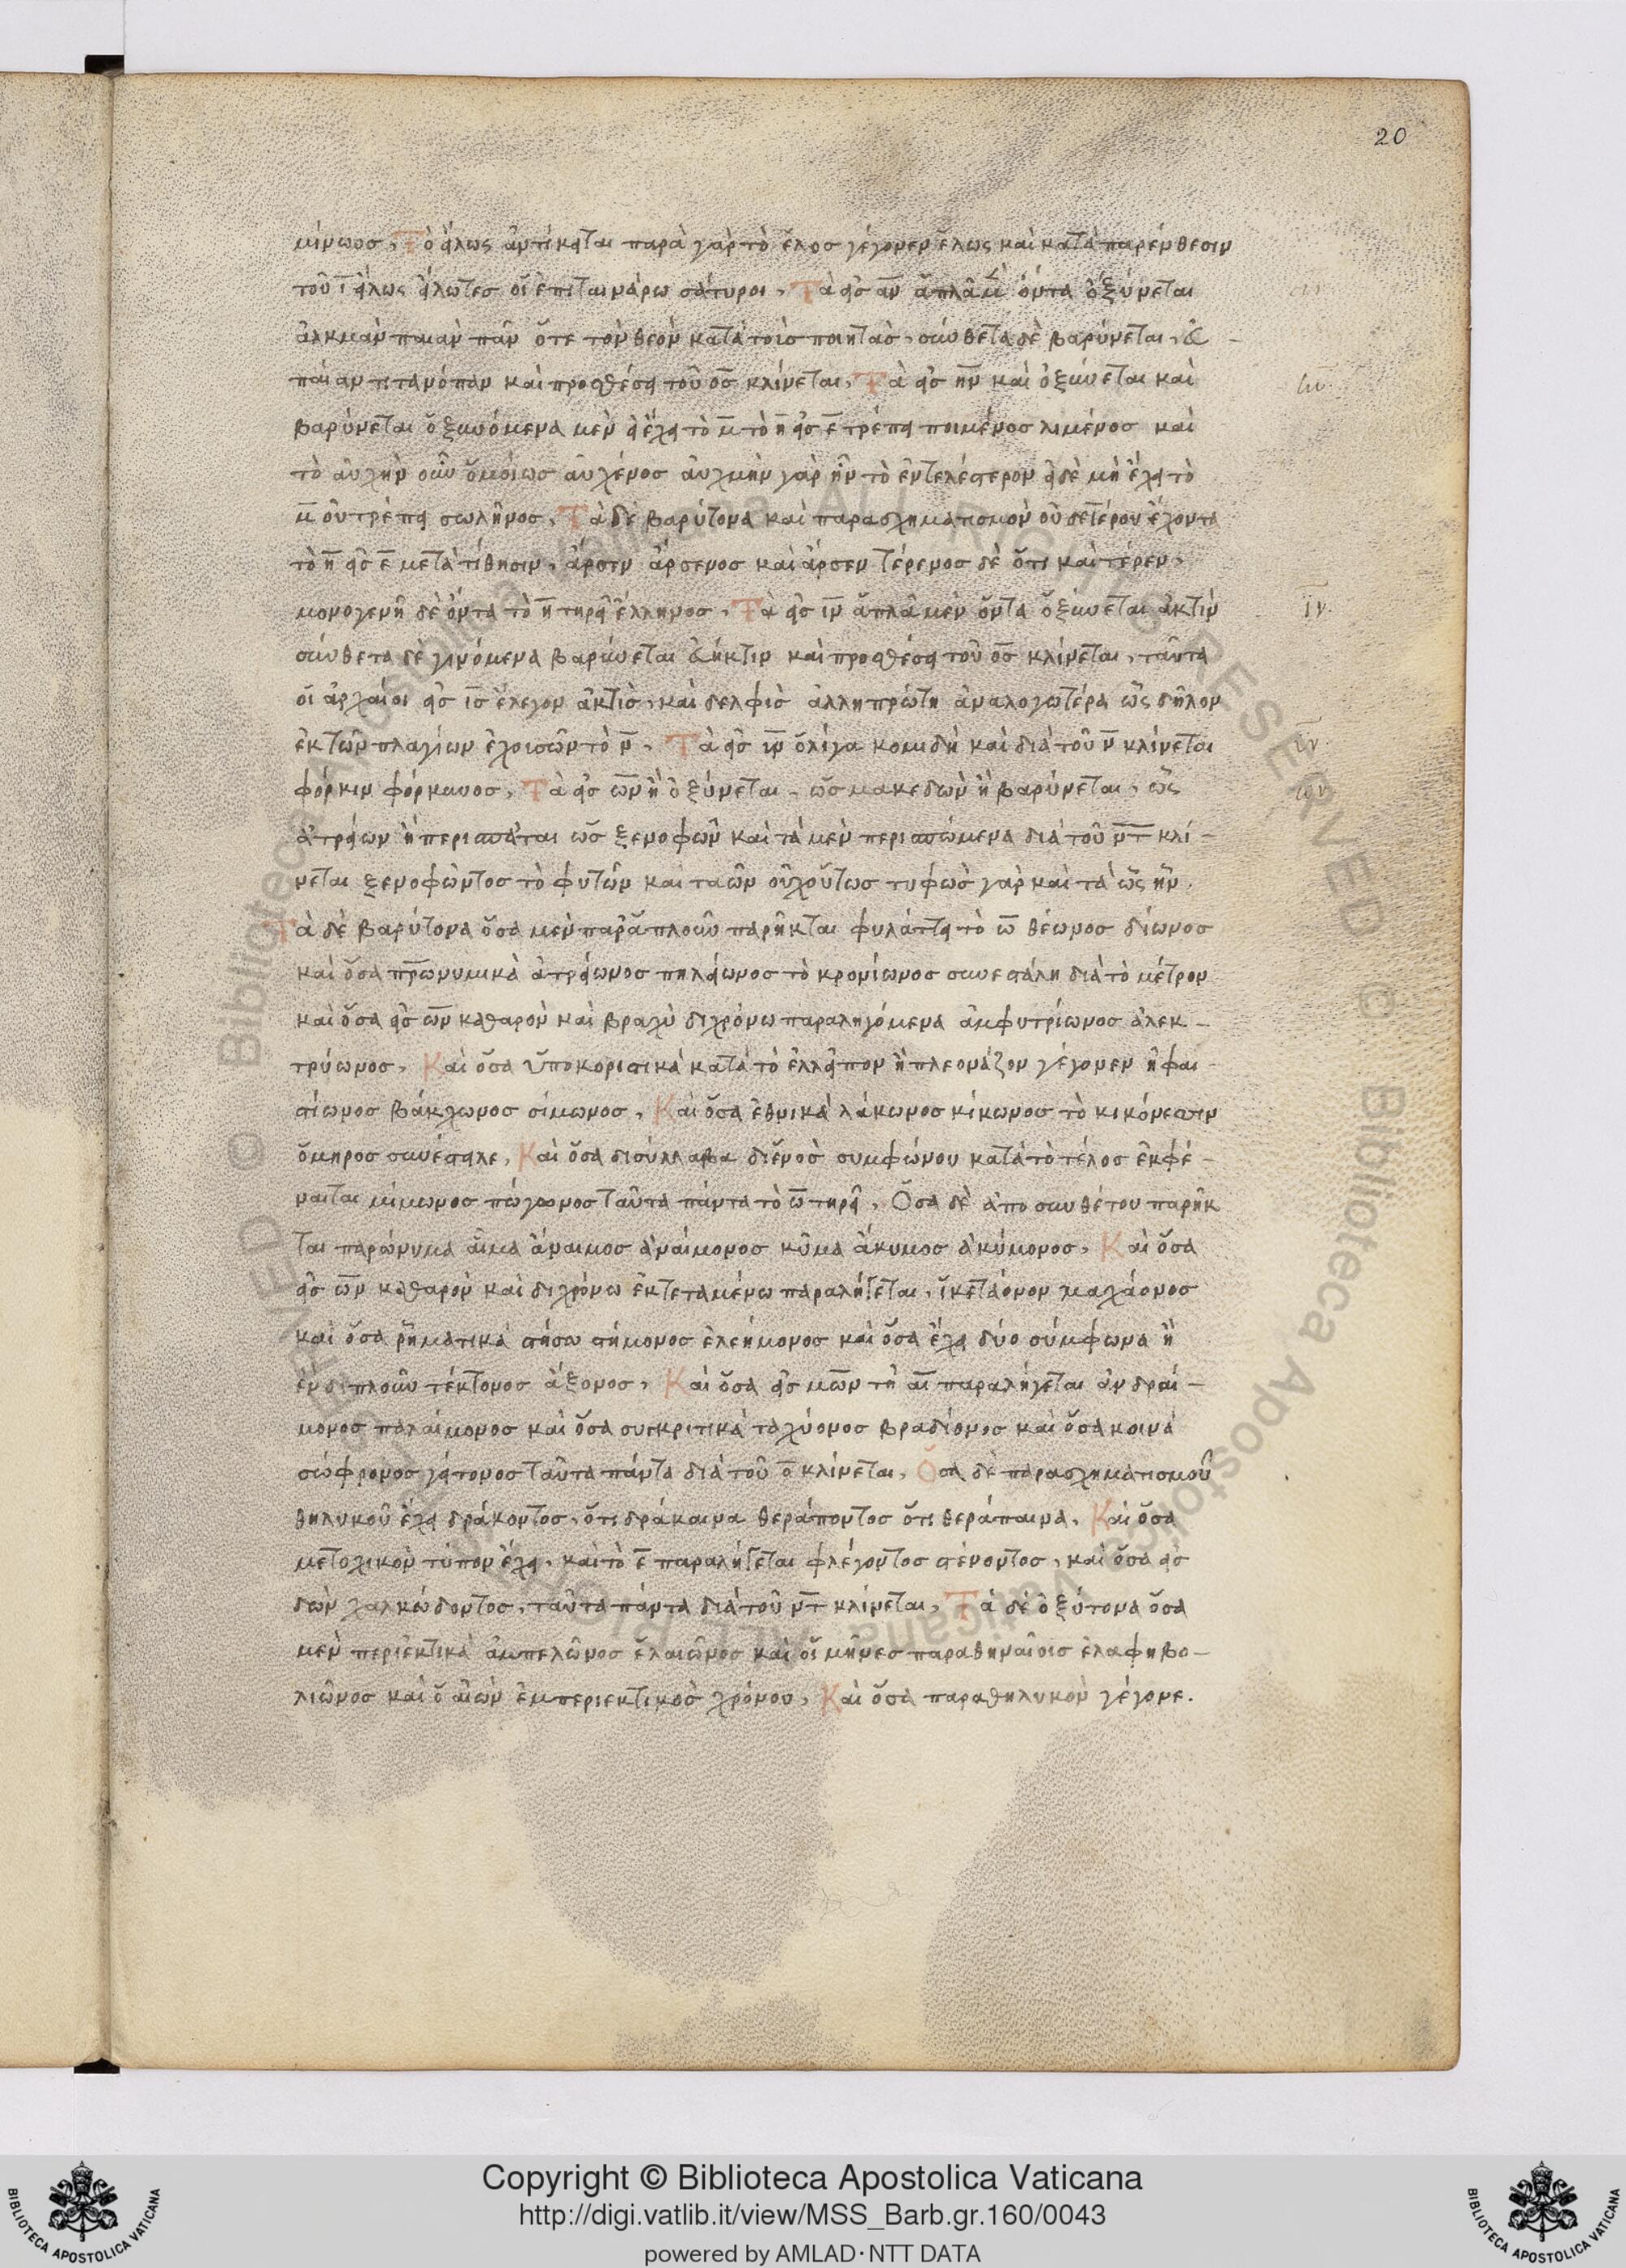 20
μίνωοσ, Τὸ εἵλως ἀντίκειται παρὰ γὰρ τὸ ἕλοσ γέγονεν ἕλως καὶ κατὰ παρένθεσιν
τοῦ ῑ εἵλως εἵλωτεσ οἱ ἐπὶ ταινάρω σάτυροι, Τὰ εἰσ ᾱν ἁπλᾶ μ̀ ὄντα ὀξύνεται
ἀλκμὰν παιὰν πὰν ὅτε τὸν θεὸν κατὰ τοὺσ ποιητὰσ, σύνθετα δὲ βαρύνεται,
παίαν τιτανόπαν καὶ προσθέσει τοῦ ο̄σ κλίνεται, Τὰ εἰσ η̄ν καὶ ὀξύνεται καὶ
βαρύνεται ὀξυνόμενα μὲν εἰ ἔχει τὸ μ̄ τὸ η̄ εἰσ ε̄ τρέπει ποιμένοσ λιμένοσ καὶ
τὸ αὐχὴν οὖν ὁμοίωσ αὐχένοσ αὐχμὴν γὰρ ἦν τὸ ἐντελέστερον εἰ δὲ μὴ ἔχει τὸ
μ̄ οὐ τρέπει σωλῆνοσ, Τὰ δὲ βαρύτονα καὶ παρασχηματισμὸν οὐδετέρου ἔχοντα
τὸ η̄ εἰσ ε̄ μετατίθησιν, ἄρσην ἄρσενοσ καὶ ἄρσεν τέρενοσ δὲ ὅτι καὶ τέρεν,
μονογενῆ δὲ ὄντα τὸ η̄ τηρεῖ ἕλληνοσ, Τὰ εἰσ ῑν ἁπλᾶ μὲν ὄντα ὀξύνεται ἀκτὶν
σύνθετα δὲ γινόμενα βαρύνεται εὐήκτιν καὶ προσθέσει τοῦ ο̄σ κλίνεται, ταῦτα
οἱ ἀρχαίοι εἰσ ῑσ ἔλεγον ἀκτὶσ, καὶ δελφὶσ ἀλλ' ἡ πρώτη ἀναλογωτέρα ὡς δῆλον
ἐκ τῶν πλαγίων ἐχουσῶν τὸ ν̄, Τὰ εἰσ ῡν ὀλίγα κομιδῆ καὶ διὰ τοῦ ν̄ κλίνεται
φόρκυν φόρκυνοσ, Τὰ εἰσ ω̄ν ἢ ὀξύνεται, ὡσ μακεδὼν ἢ βαρύνεται, ὡς
ἀτρείων ἢ περισπᾶται ὡσ ξενοφῶν καὶ τὰ μὲν περισπώμενα διὰ τοῦ ν̄τ̄ κλί-
νεται ξενοφῶντοσ τὸ φυτῶν καὶ ταῶν οὐχ οὕτωσ τυφὼσ γὰρ καὶ τὰ ὡς ἦν.
Τὰ δὲ βαρύτονα ὅσα μὲν παρ' ἁπλοῦν παρῆκται φυλάττει τὸ ω̄ θέωνοσ δίωνοσ
καὶ ὅσα πρωνυμικὰ ἀτρείωνοσ πηλείωνοσ τὸ κρονίωνοσ συνεστάλη διὰ τὸ μέτρον
καὶ ὅσα εἰσ ω̄ν καθαρὸν καὶ βραχὺ διχρόνω παραληγόμενα ἀμφυτρίωνοσ ἀλεκ-
τρύωνοσ, Καὶ ὅσα ὑποκοριστικὰ κατὰ τὸ ἐλλεῖπον ἢ πλεονάζον γέγονεν ἡφαι-
στίωνοσ βάκχωνοσ σίμωνοσ, Καὶ ὅσα ἐθνικὰ λάκωνοσ κίκωνοσ τὸ κικόνεσσιν
ὅμηροσ συνέστειλε, Καὶ ὅσα δισύλλαβα δι' ἑνὸσ συμφώνου κατὰ τὸ τέλοσ ἐκφέ-
ρεται μίμωνοσ πώγωνοσ ταῦτα πάντα τὸ ω̄ τηρεῖ, Ὅσα δὲ ἀπὸ συνθέτου παρῆκ
ται παρώνυμα αἷμα ἄναιμοσ ἀναίμονοσ κῦμα ἄκυμοσ ἀκύμονοσ, Καὶ ὅσα
εἰσ ω̄ν καθαρὸν καὶ διχρόνω ἐκτεταμένω παραλήγεται, ἱκετάονον μαχάονοσ
καὶ ὅσα ῥηματικὰ στήσω στήμονοσ ἐλεήμονοσ καὶ ὅσα ἔχει δύο σύμφωνα ἢ
ἐν διπλοῦν τέκτονοσ ἄξονοσ, Καὶ ὅσα εἰσ μω̄ν τῆ αῑ παραλήγεται ἀνδραί-
μονοσ παλαίμονοσ καὶ ὅσα συγκριτικὰ ταχύονοσ βραδίονοσ καὶ ὅσα κοινὰ
σώφρονοσ γείτονοσ ταῦτα πάντα διὰ τοῦ ο̄ κλίνεται, Ὅσα δὲ παρασχηματισμοῦ
θηλυκοῦ ἔχει δράκοντοσ, ὅτι δράκαινα θεράποντοσ ὅτι θεράπαινα, Καὶ ὅσα
μετοχικὸν τύπον ἔχει, καὶ τὸ ε̄ παραλήγεται φλέγοντοσ στένοντοσ, καὶ ὅσα εἰσ
δὼν χαλκώδοντοσ, ταῦτα πάντα διὰ τοῦ ν̄τ̄ κλίνεται, Τὰ δὲ ὀξύτονα ὅσα
μὲν περιεκτικὰ ἀμπελῶνοσ ἐλαιῶνοσ καὶ οἱ μῆνεσ παρ' ἀθηναίοισ ἐλαφηβο-
λιῶνοσ καὶ ὁ αἰὼν ἐμπεριεκτικὸσ χρόνου, Καὶ ὅσα παρὰ θηλυκὸν γέγονε.
η̄ν
ῑν.
ῡν
ω̄ν
Copyright © Biblioteca Apostolica Vaticana
http://digi.vatlib.it/view/MSS_Barb.gr.160/0043
powered by AMLAD·NTT DATA
BIBLIOTECA APOSTOLICA VATICANA
BIBLIOTECA APOSTOLICA VATICANA